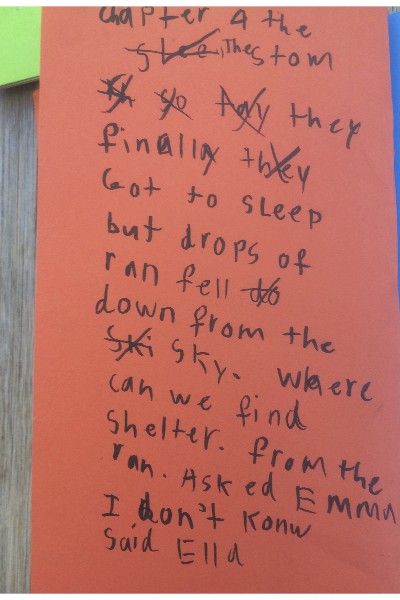 Chapter 4 the
slee, The stom
so they
finally they
Got to sleep
but drops of
ran fell do
down from the
Ski sky. where
can we find
shelter. from the
ran. Asked Emma
I don't konw
said Ella